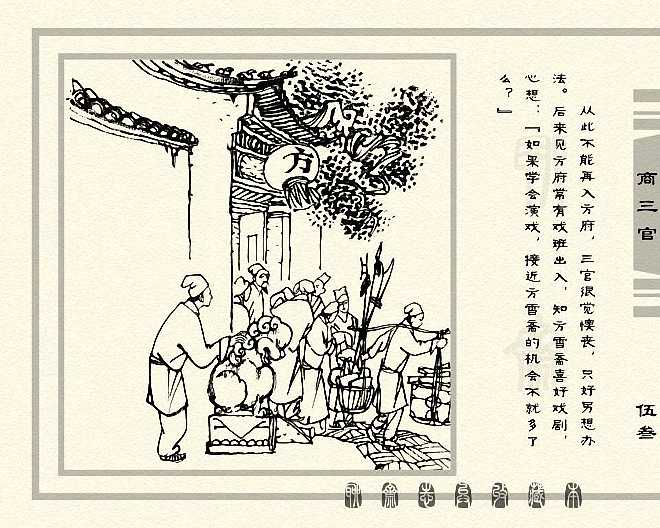 从此不能再入方府，三官很觉懊丧，只好另想办
法。后来见方府常有戏班出入，知方霄斋喜好戏剧，
心想：『如果学会演戏，接近方霄斋的机会不就多了
么？』
商三官
伍叁
方
聊斋志异收藏本